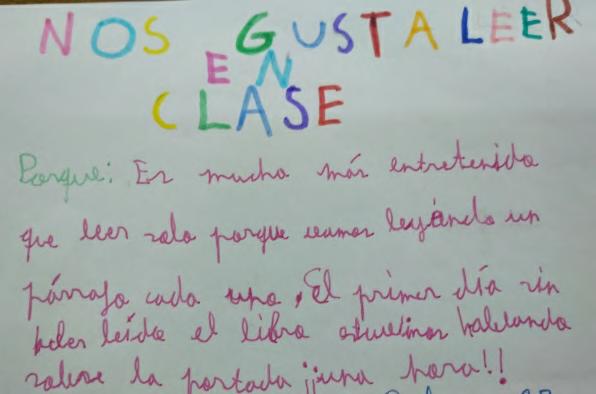 NOS GUSTA LEER
EN
CLASE
Porque: Es mucho más entretenido
que leer solo porque vamos leyéndo un
párrafo cada uno. El primer día sin
haber leído el libro estuvimos hablando
sobre la portada ¡¡una hora!!